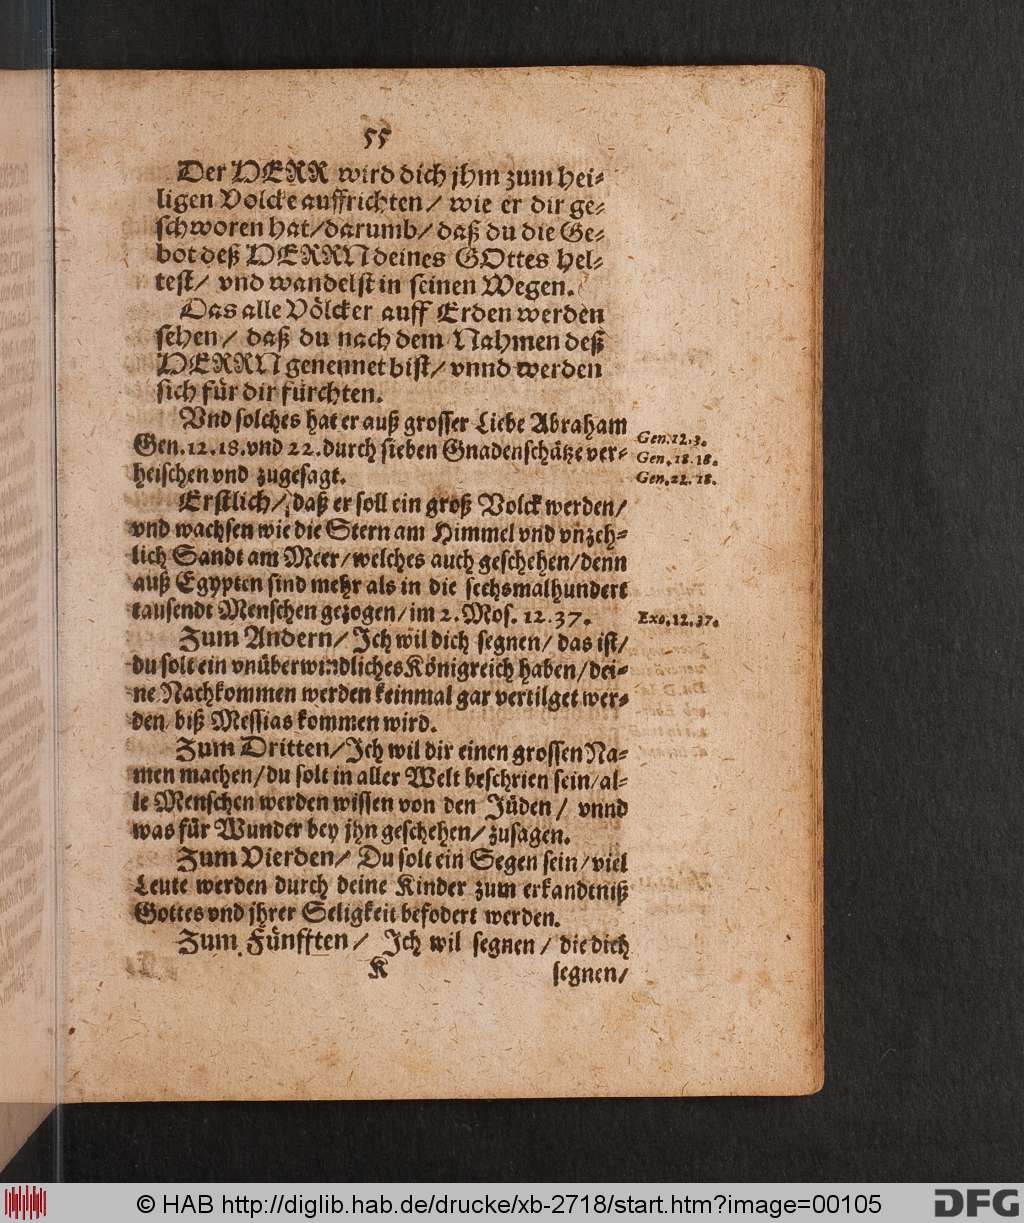 55
Der HERR wird dich jhm zum hei-
ligen Volcke auffrichten/ wie er dir ge-
schworen hat/darumb/ daß du die Ge-
bot deß HERRN deines GOttes hel-
test/ vnd wandelst in seinen Wegen.
Das alle Völcker auff Erden werden
sehen/ daß du nach dem Nahmen deß
HERRN genennet bist/ vnnd werden
sich für dir fürchten.
Vnd solches hat er auß grosser Liebe Abraham
Gen. 12. 18. vnd 22. durch sieben Gnadenschätze ver-
heischen vnd zugesagt.
Gen. 12. 3.
Gen. 18. 18.
Gen. 22. 18.
Erstlich/ daß er soll ein groß Volck werden/
vnd wachsen wie die Stern am Himmel vnd vnzeh-
lich Sandt am Meer/welches auch geschehen/denn
auß Egypten sind mehr als in die sechsmalhundert
tausendt Menschen gezogen/im 2. Mos. 12. 37.
Exo. 12. 37.
Zum Andern/ Ich wil dich segnen/ das ist/
du solt ein vnüberwindliches Königreich haben/dei-
ne Nachkommen werden keinmal gar vertilget wer-
den/ biß Messias kommen wird.
Zum Dritten/Ich wil dir einen grossen Na-
men machen/du solt in aller Welt beschrien sein/al-
le Menschen werden wissen von den Jüden/ vnnd
was für Wunder bey jhn geschehen/zusagen.
Zum Vierden/ Du solt ein Segen sein/viel
Leute werden durch deine Kinder zum erkandtniß
Gottes vnd jhrer Seligkeit befodert werden.
Zum Fünfften/ Ich wil segnen/ die dich
K segnen/
© HAB http://diglib.hab.de/drucke/xb-2718/start.htm?image=00105
DFG